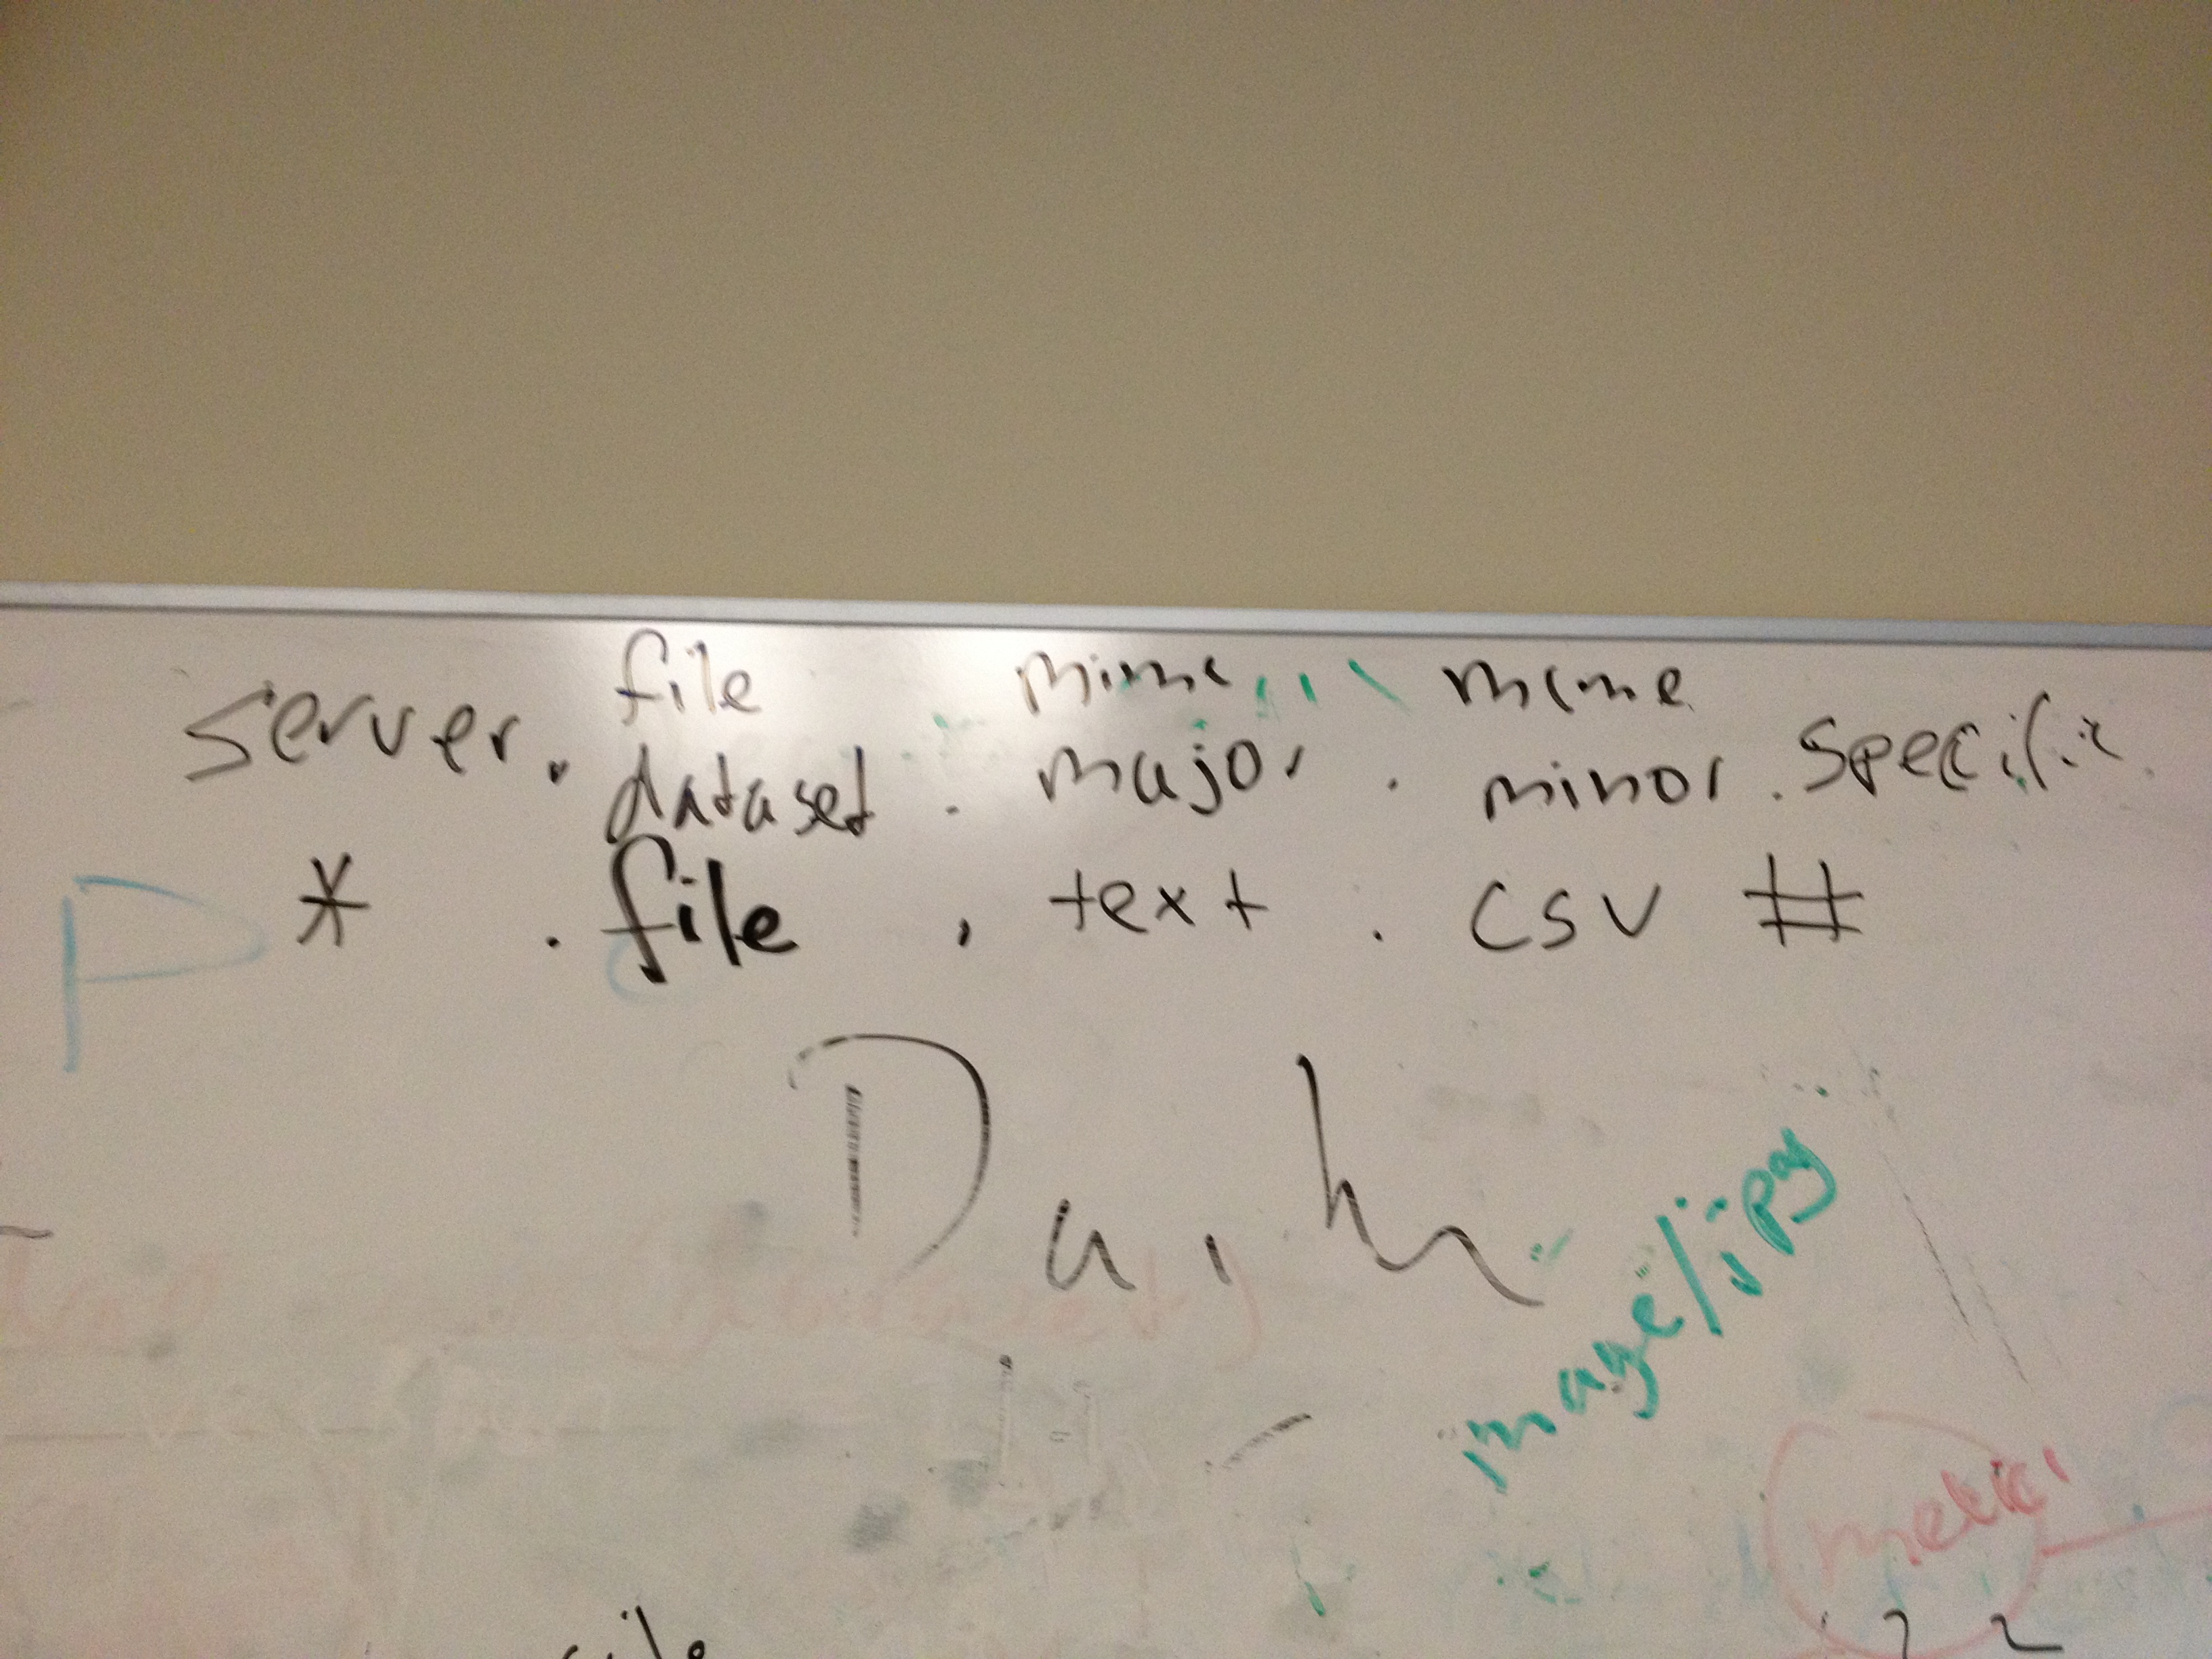 file mime mime
server. dataset . major . minor . specific
* . file . text . csv #
P
D
image/jpg
file